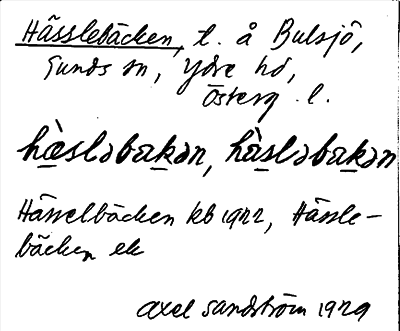 Hässlebäcken, t. å Bulsjö,
Sunds sn, Ydre hd,
Österg. l.
hæ̀sləbækən, hàsləbækən
Hässelbäcken kb 1922, Hässle-
bäcken ek
Axel Sandström 1929